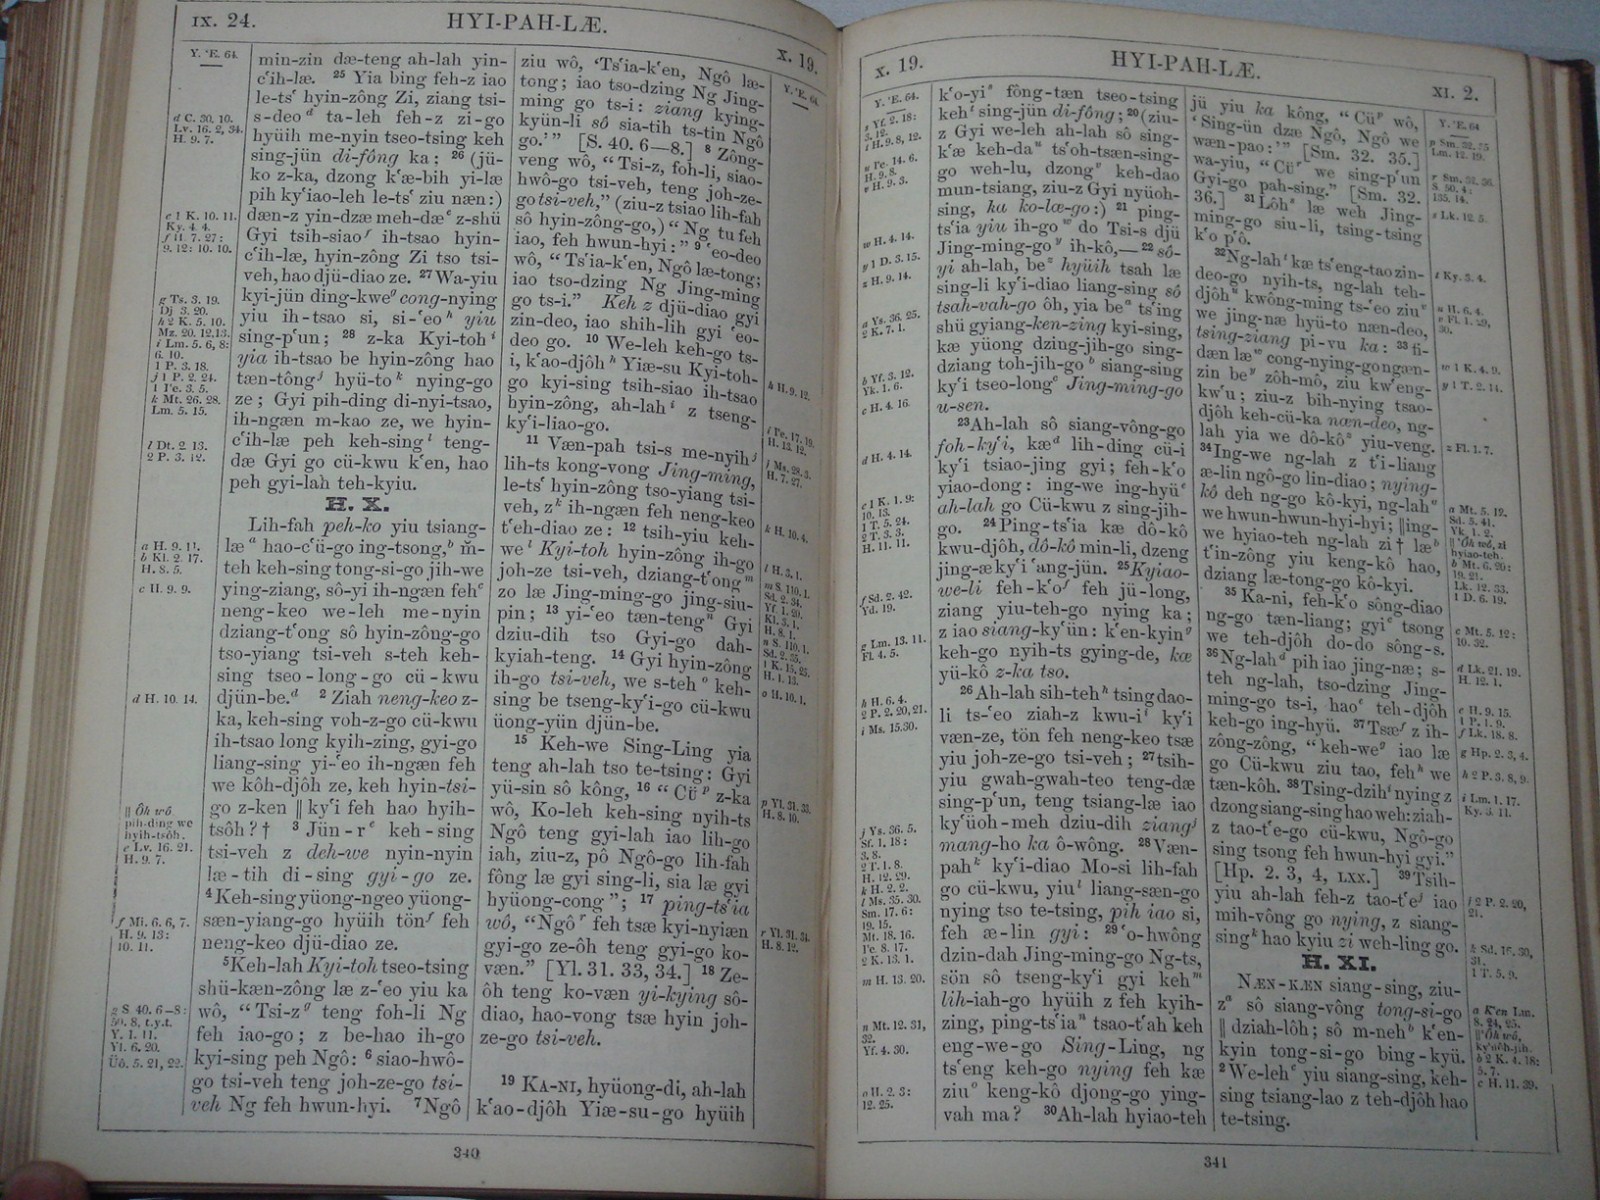 IX. 24.
HYI-PAH-LÆ.
X. 19.
Y. ʻE. 64.
min-zin dæ-teng ah-lah yin-
cʻih-læ. 25 Yia bing feh-z iao
le-tsʻ hyin-zông Zi, ziang tsi-
s-deo d ta-leh feh-z zi-go
hyüih me-nyin tseo-tsing keh
sing-jün di-fông ka; 26 (jü-
ko z-ka, dzong kʻæ-bih yi-læ
pih kyʻiao-leh le-tsʻ ziu næn:)
dæn-z yin-dzæ meh-dæ e z-shü
Gyi tsih-siao f ih-tsao hyin-
cʻih-læ, hyin-zông Zi tso tsi-
veh, hao djü-diao ze. 27 Wa-yiu
kyi-jün ding-kwe g cong-nying
yiu ih-tsao si, si-ʻeo h yiu
sing-pʻun; 28 z-ka Kyi-toh i
yia ih-tsao be hyin-zông hao
tæn-tông j hyü-to k nying-go
ze; Gyi pih-ding di-nyi-tsao,
ih-ngæn m-kao ze, we hyin-
cʻih-læ peh keh-sing l teng-
dæ Gyi go cü-kwu kʻen, hao
peh gyi-lah teh-kyiu.
H. X.
Lih-fah peh-ko yiu tsiang-
læ a hao-cʻü-go ing-tsong, b m̆-
teh keh-sing tong-si-go jih-we
ying-ziang, sô-yi ih-ngæn feh c
neng-keo we-leh me-nyin
dziang-tʻong sô hyin-zông-go
tso-yiang tsi-veh s-teh keh-
sing tseo-long-go cü-kwu
djün-be. d 2 Ziah neng-keo z-
ka, keh-sing voh-z-go cü-kwu
ih-tsao long kyih-zing, gyi-go
liang-sing yi-ʻeo ih-ngæn feh
we kôh-djôh ze, keh hyin-tsi-
go z-ken || kyʻi feh hao hyih-
tsôh? † 3 Jün-r e keh-sing
tsi-veh z deh-we nyin-nyin
læ-tih di-sing gyi-go ze.
4 Keh-sing yüong-ngeo yüong-
sæn-yiang-go hyüih tön f feh
neng-keo djü-diao ze.
5 Keh-lah Kyi-toh tseo-tsing
shü-kæn-zông læ z-ʻeo yiu ka
wô, “Tsi-z g teng foh-li Ng
feh iao-go; z be-hao ih-go
kyi-sing peh Ngô: 6 siao-hwô-
go tsi-veh teng joh-ze-go tsi-
veh Ng feh hwun-hyi. 7 Ngô
d C. 30. 10.
Lv. 16. 2, 34.
H. 9. 7.
e 1 K. 10. 11.
Ky. 4. 4.
f H. 7. 27:
9. 12: 10. 10.
g Ts. 3. 19.
Dj 3. 20.
h 2 K. 5. 10.
Mz. 20. 12.13.
i Lm. 5. 6, 8:
6. 10.
1 P. 3. 18.
j 1 P. 2. 24.
1 Ye. 3. 5.
k Mt. 26. 28.
Lm. 5. 15.
l Dt. 2 13.
2 P. 3. 12.
a H. 9. 11.
b Kl. 2. 17.
H. 8. 5.
c H. 9. 9.
d H. 10. 14.
|| Ôh wô
pih-ding we
hyih-tsôh.
e Lv. 16. 21.
H. 9. 7.
f Mi. 6. 6, 7.
H. 9. 13:
10. 11.
g S 40. 6—8:
50. 8, t.y.t.
Y. 1. 11.
Yl. 6. 20.
Üô. 5. 21, 22.
ziu wô, ‘Tsʻia-kʻen, Ngô læ-
tong; iao tso-dzing Ng Jing-
ming go ts-i: ziang kying-
kyün-li sô sia-tih ts-tin Ngô
go.’” [S. 40. 6—8.] 8 Zông-
veng wô, “Tsi-z, foh-li, siao-
hwô-go tsi-veh, teng joh-ze-
go tsi-veh,” (ziu-z tsiao lih-fah
sô hyin-zông-go,) “Ng tu feh
iao, feh hwun-hyi:” 9 ʻeo-deo
wô, “Tsʻia-kʻen, Ngô læ-tong;
iao tso-dzing Ng Jing-ming
go ts-i.” Keh z djü-diao gyi
zin-deo, iao shih-lih gyi ʻeo-
deo go. 10 We-leh keh-go ts-
i, kʻao-djôh h Yiæ-su Kyi-toh-
go kyi-sing tsih-siao ih-tsao
hyin-zông, ah-lah i z tseng-
kyʻi-liao-go.
11 Væn-pah tsi-s me-nyih j
lih-ts kong-vong Jing-ming,
le-tsʻ hyin-zông tso-yiang tsi-
veh, z k ih-ngæn feh neng-keo
tʻeh-diao ze: 12 tsih-yiu keh-
we l Kyi-toh hyin-zông ih-go
joh-ze tsi-veh, dziang-tʻong m
zo læ Jing-ming-go jing-siu-
pin; 13 yi-ʻeo tæn-teng n Gyi
dziu-dih tso Gyi-go dah-
kyiah-teng. 14 Gyi hyin-zông
ih-go tsi-veh, we s-teh o keh-
sing be tseng-kyʻi-go cü-kwu
üong-yün djün-be.
15 Keh-we Sing-Ling yia
teng ah-lah tso te-tsing: Gyi
yü-sin sô kông, 16 “Cü p z-ka
wô, Ko-leh keh-sing nyih-ts
Ngô teng gyi-lah iao lih-go
iah, ziu-z, pô Ngô-go lih-fah
fông læ gyi sing-li, sia læ gyi
hyüong-cong”; 17 ping-tsʻia
wô, “Ngô r feh tsæ kyi-nyiæn
gyi-go ze-ôh teng gyi-go ko-
væn.” [Yl. 31. 33, 34.] 18 Ze-
ôh teng ko-væn yi-kying sô-
diao, hao-vong tsæ hyin joh-
ze-go tsi-veh.
19 KA-NI, hyüong-di, ah-lah
kʻao-djôh Yiæ-su-go hyüih
Y. ʻE. 64.
h H. 9. 12.
i Ye. 17. 19.
H. 13. 12.
j Ms. 28. 3.
H. 7. 27.
k H. 10. 4.
l H. 3. 1.
m S. 110. 1.
Sd. 2. 34.
Yf. 1. 20.
Kl. 3. 1.
H. 8. 1.
n S. 110. 1.
Sd. 2. 35.
1 K. 15. 25.
H. 1. 13.
o H. 10. 1.
p Yl. 31. 33.
H. 8. 10.
r Yl. 31. 34.
H. 8. 12.
340
X. 19.
HYI-PAH-LÆ.
XI. 2.
Y. ʻE. 64.
s Yf. 2. 18:
3. 12.
t H. 9. 8, 12.
u Ye. 14. 6.
H. 9. 8.
v H. 9. 3.
w H. 4. 14.
y 1 D. 3. 15.
z H. 9. 14.
a Ys. 36. 25.
2 K. 7. 1.
b Yf. 3. 12.
Yk. 1. 6.
c H. 4. 16.
d H. 4. 14.
e 1 K. 1. 9:
10. 13.
1 T. 5. 24.
2 T. 3. 3.
H. 11. 11.
f Sd. 2. 42.
Yd. 19.
g Lm. 13. 11.
Fl. 4. 5.
h H. 6. 4.
2 P. 2. 20, 21.
i Ms. 15.30.
j Ys. 36. 5.
Sf. 1. 18:
3. 8.
2 T. 1. 8.
H. 12. 29.
k H. 2. 2.
l Ms. 35. 30.
Sm. 17. 6:
19. 15.
Mt. 18. 16.
Ye. 8. 17.
2 K. 13. 1.
m H. 13. 20.
n Mt. 12. 31,
32.
Yf. 4. 30.
o H. 2. 3:
12. 25.
kʻo-yi s fông-tæn tseo-tsing
keh t sing-jün di-fông; 20 (ziu-
z Gyi we-leh ah-lah sô sing-
kʻæ keh-da u tsʻoh-tsæn-sing-
go weh-lu, dzong v keh-dao
mun-tsiang, ziu-z Gyi nyüoh-
sing, ka ko-læ-go:) 21 ping-
tsʻia yiu ih-go w do Tsi-s djü
Jing-ming-go y ih-kô,— 22 sô-
yi ah-lah, be z hyüih tsah læ
sing-li kyʻi-diao liang-sing sô
tsah-vah-go ôh, yia be a tsʻing
shü gyiang-ken-zing kyi-sing,
kæ yüong dzing-jih-go sing-
dziang toh-jih-go b siang-sing
kyʻi tseo-long c Jing-ming-go
u-sen.
23 Ah-lah sô siang-vông-go
foh-kyʻi, kæ d lih-ding cü-i
kyʻi tsiao-jing gyi; feh-kʻo
yiao-dong: ing-we ing-hyü e
ah-lah-go Cü-kwu z sing-jih-
go. 24 Ping-tsʻia kæ dô-kô
kwu-djôh, dô-kô min-li, dzeng
jing-ækyʻi ʻang-jün. 25 Kyiao-
we-li feh-kʻo f feh jü-long,
ziang yiu-teh-go nying ka;
z iao siang-kyʻün: kʻen-kyin g
keh-go nyih-ts gying-de, kæ
yü-kô z-ka tso.
26 Ah-lah sih-teh h tsing dao-
li ts-ʻeo ziah-z kwu-i i kyʻi
væn-ze, tön feh neng-keo tsæ
yiu joh-ze-go tsi-veh; 27 tsih-
yiu gwah-gwah-teo teng-dæ
sing-pʻun, teng tsiang-læ iao
kyʻüoh-meh dziu-dih ziang j
mang-ho ka ô-wông. 28 Væn-
pah k kyʻi-diao Mo-si lih-fah
go cü-kwu, yiu l liang-sæn-go
nying tso te-tsing, pih iao si,
feh æ-lin gyi: 29 ʻo-hwông
dzin-dah Jing-ming-go Ng-ts,
sön sô tseng-kyʻi gyi keh m
lih-iah-go hyüih z feh kyih-
zing, ping-tsʻia n tsao-tʻah keh
eng-we-go Sing-Ling, ng
tsʻeng keh-go nying feh kæ
ziu o keng-kô djong-go ying-
vah ma? 30 Ah-lah hyiao-teh
jü yiu ka kông, “Cü p wô,
‘Sing-ün dzæ Ngô, Ngô we
wæn-pao:’” [Sm. 32. 35.]
wa-yiu, “Cü r we sing-pʻun
Gyi-go pah-sing.” [Sm. 32.
36.] 31 Lôh s læ weh Jing-
ming-go siu-li, tsing-tsing
kʻo pʻô.
32 Ng-lah t kæ tsʻeng-tao zin-
deo-go nyih-ts, ng-lah teh-
djôh u kwông-ming ts-ʻeo ziu v
we jing-næ hyü-to næn-deo,
tsing-ziang pi-vu ka: 33 fi-
dæn læ w cong-nying-gongæn-
zin be y zôh-mô, ziu kwʻeng-
kwʻu; ziu-z bih-nying tsao-
djôh keh-cü-ka næn-deo, ng-
lah yia we dô-kô z yiu-veng.
34 Ing-we ng-lah z tʻi-liang
æ-lin ngô-go lin-diao; nying-
kô deh ng-go kô-kyi, ng-lah a
we hwun-hwun-hyi-hyi; ||ing-
we hyiao-teh ng-lah zi † læ b
tʻin-zông yiu keng-kô hao,
dziang læ-tong-go kô-kyi.
35 Ka-ni, feh-kʻo sông-diao
ng-go tæn-liang; gyi c tsong
we teh-djôh do-do sông-s.
36 Ng-lah d pih iao jing-næ; s-
teh ng-lah, tso-dzing Jing-
ming-go ts-i, hao e teh-djôh
keh-go ing-hyü. 37 Tsæ f z ih-
zông-zông, “keh-we g iao læ
go Cü-kwu ziu tao, feh h we
tæn-kôh. 38 Tsing-dzih i nying z
dzong siang-sing hao weh: ziah-
z tao-tʻe-go cü-kwu, Ngô-go
sing tsong feh hwun-hyi gyi.”
[Hp. 2. 3, 4, LXX.] 39 Tsih-
yiu ah-lah feh-z tao-tʻe j iao
mih-vông go nying, z siang-
sing k hao kyiu zi weh-ling go.
H. XI.
NÆN-KÆN siang-sing, ziu-
z a sô siang-vông tong-si-go
|| dziah-lôh; sô m-neh b kʻen-
kyin tong-si-go bing-kyü.
2 We-leh c yiu siang-sing, keh-
sing tsiang-lao z teh-djôh hao
te-tsing.
Y. ʻE. 64
p Sm. 32. 35
Lm. 12. 19.
r Sm. 32. 36.
S. 50. 4:
135. 14.
s Lk. 12. 5.
t Ky. 3. 4.
u H. 6. 4.
v Fl. 1. 29,
30.
w 1 K. 4. 9.
y 1 T. 2. 14.
z Fl. 1. 7.
a Mt. 5. 12.
Sd. 5. 41.
Yk. 1. 2.
|| ʻÔh wô, zi
hyiao-teh.
b Mt. 6. 20:
19. 21.
Lk. 12. 33.
1 D. 6. 19.
c Mt. 5. 12:
10. 32.
d Lk. 21. 19.
H. 12. 1.
e H. 9. 15.
1 P. 1. 9.
f Lk. 18. 8.
g Hp. 2. 3, 4.
h 2 P. 3. 8, 9.
i Lm. 1. 17.
Ky. 3. 11.
j 2 P. 2. 20,
21.
k Sd. 16. 30,
31.
1 T. 5. 9.
a Kʻen Lm.
8. 24, 25.
|| ʻÔh wô,
kyʻüôh-jih.
b 2 K. 4. 18:
5. 7.
c H. 11. 39.
341